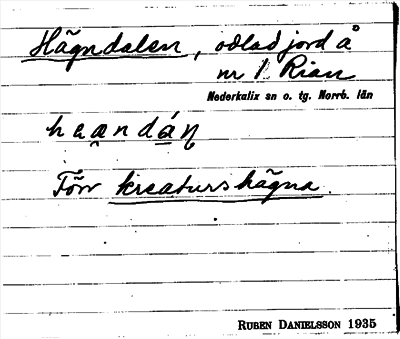 Hägndalen, odlad jord å
nr 1 Rian
Nederkalix sn o. tg. Norrb. län
Förr kreaturshägna.
RUBEN DANIELSSON 1935